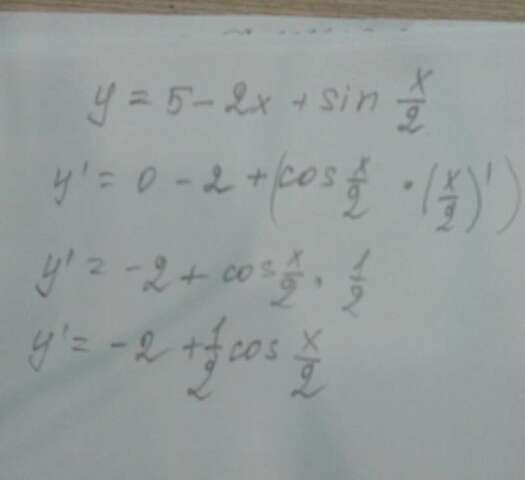 y = 5 - 2x + sin x/2
y' = 0 - 2 + (cos x/2 · (x/2)')
y' = -2 + cos x/2 · 1/2
y' = -2 + 1/2 cos x/2